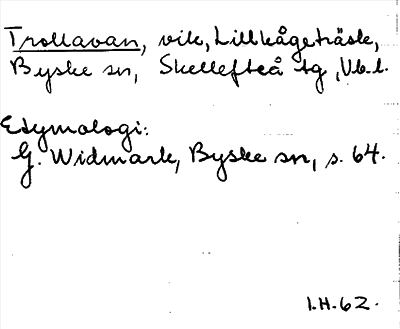 Trollavan, vik, Lillkågeträsk,
Byske sn, Skellefteå tg, Vb. l.
Etymologi:
G. Widmark, Byske sn, s. 64.
I.H.62.